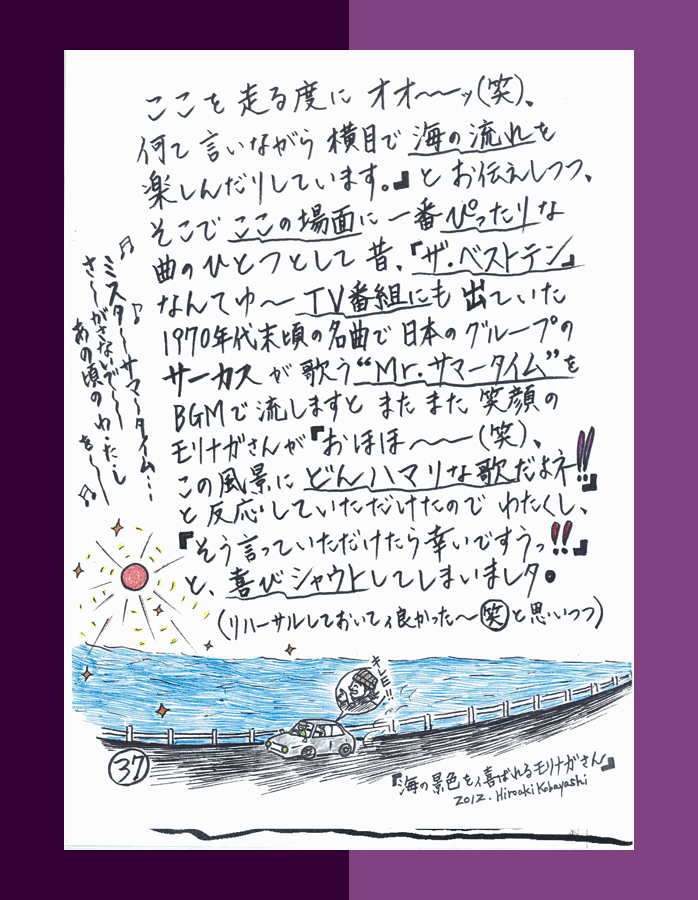 ここを走る度にオオ〜〜ッ(笑)、
何て言いながら横目で海の流れを
楽しんだりしています。』とお伝えしつつ、
そこでここの場面に一番ぴったりな
曲のひとつとして昔、『ザ・ベストテン』
なんてゆ〜TV番組にも出ていた
1970年代末頃の名曲で日本のグループの
サーカスが歌う“Mr.サマータイム”を
BGMで流しますとまたまた笑顔の
モリナガさんが『おほほ〜〜(笑)、
この風景にどんハマリな歌だよネ!!』
と反応していただけたのでわたくし、
『そう言っていただけたら幸いですうっ!!』
と、喜びシャウトしてしまいましタ。
(リハーサルしておいてィ良かった〜笑と思いつつ)
♬ミスタ〜サマ〜タイム…♪
さ〜がさないで〜
あの頃のわ・た・しを〜♬
キレE!!
37
『海の景色をィ喜ばれるモリナガさん』
2012. Hiroaki Kobayashi